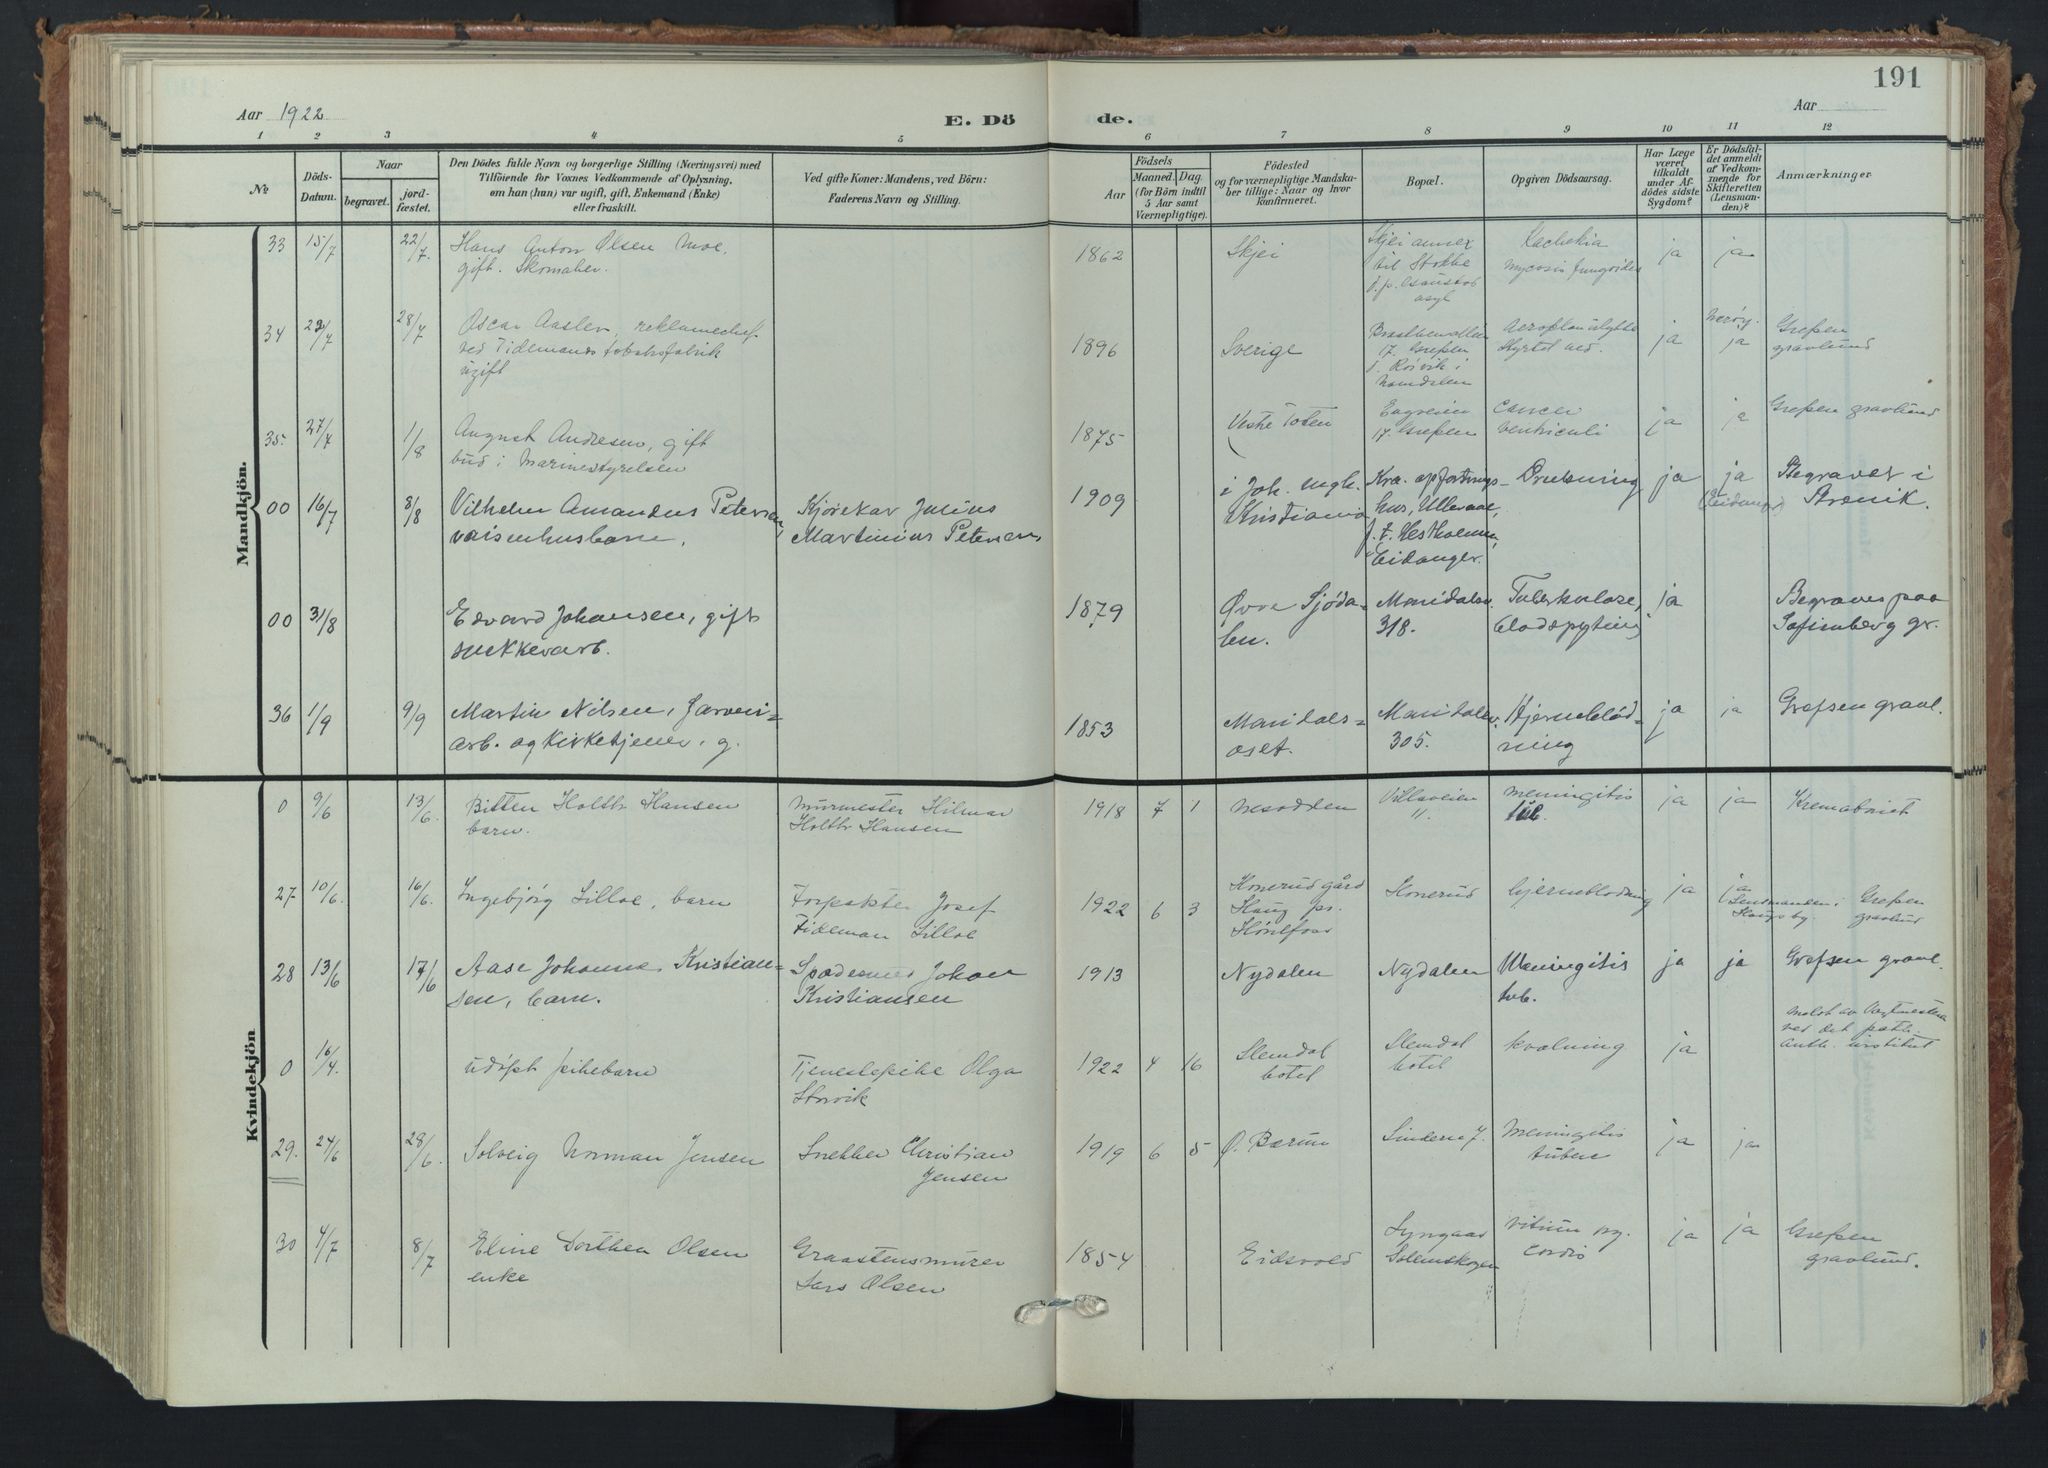 191
Aar 1922
E. Dö
de.
Aar
1 2 3 4 5 6 7 8 9 10 11 12
No
Döds-
Datum.
Naar
begravet.
jord-
fæstet.
Den Dödes fulde Navn og borgerlige Stilling (Næringsvei) med
Tilföiende for Voxnes Vedkommende af Oplysning,
om han (hun) var ugift, gift, Enkemand (Enke)
eller fraskilt.
Ved gifte Koner: Mandens, ved Börn:
Faderens Navn og Stilling.
Aar
Födsels
Maaned. Dag.
(for Börn indtil
5 Aar samt
Værnepligtige).
Födested
og for værnepligtige Mandska-
ber tillige: Naar og hvor
konfirmeret.
Bopæl.
Opgiven Dödsaarsag.
Har Læge
været
tilkaldt
under Af-
dödes sidste
Sygdom?
Er Dödsfal-
det anmeldt
af Vedkom-
mende for
Skifteretten
(Lensman-
den)?
Anmærkninger
Mandkjön.
33 15/7 22/7. Hans Anton Olsen Moe,
gift. Skomaker.
1862 Skjei
Skjei annex
til Stokke
asyl
Kachekia
mycosis fungoides
ja ja
34 28/7 Oscar Aasler, reklamechef
ved Tidemands tobaksfabrik
ugift
1896 Sverige
17. Grefsen
Namdalen
Aeroplanulykke
styrtet ned.
ja ja
Grefsen
gravlund
35. 27/7 1/8 August Andresen, gift
bud i Marinestyrelsen
1875 Vestre Toten
Engveien
17. Grefsen
Cancer
ventriculi
ja ja Grefsen gravlund
00 16/7 8/8 Vilhelm Amandus Petersen,
vaisenhusbarn.
Kjørekar Julius
Martinius Petersen
1909 i Joh. mgh.
Kristiania
Kra. opfostrings-
hus, Ullevaal,
Eidanger.
Drukning
ja ja
(Eidanger)
Begravet i
Brevik.
00 31/8 Edvard Johansen, gift
snekkerarb.
1879 Øvre Sjøda-
len.
Maridalsv.
318.
Tuberkulose,
blodspytning
ja
Begraves paa
Sofienberg gr.
36 1/9 9/9 Martin Nilsen, farveri-
arb. og kirketjener. g.
1853 Maridals-
oset.
Maridalsv.
305.
Hjerneblød-
ning
ja ja Grefsen gravl.
Kvindekjön
0 9/6 13/6. Bitten Holth Hansen
barn.
Murmester Hilmar
Holth Hansen
1918 7 1 Nesodden
Villaveien
11.
meningitis
tub.
ja ja Kremabrist
27 10/6. 16/6. Ingebjörg Lilloe, barn
Forpakter Josef
Tideman Lilloe
1922 6 3 Konerud gård
Haug ps.
Hönefoss
Konerud hjerneblødning
ja ja
Lensmanden i
Haugsby.
Grefsen
gravlund
28 13/6 17/6 Aase Johanne Kristian-
sen, barn.
Johan
Kristiansen
1913 Nydalen Nydalen Meningitis
tub.
ja ja Grefsen gravl.
0 16/4. udöpt pikebarn
Tjenestepike Olga
Storvik
1922 4 16 Slemdal
hotel
Slemdal
hotel
kvælning
ja
Meldt av Vagtmesteren
ved det path.
anth. institut
29. 24/6 28/6. Solveig Norman Jensen
Snekker Christian
Jensen
1919 6 5 Ö. Bærum Sindern 7. Meningitis
tuberc
ja ja
30 4/7 8/7 Eline Dorthea Olsen
enke
Graastensmurer
Lars Olsen
1854 Eidsvold
Lyngaas
Solemskogen
vitium org.
cordis
ja ja Grefsen
gravlund.